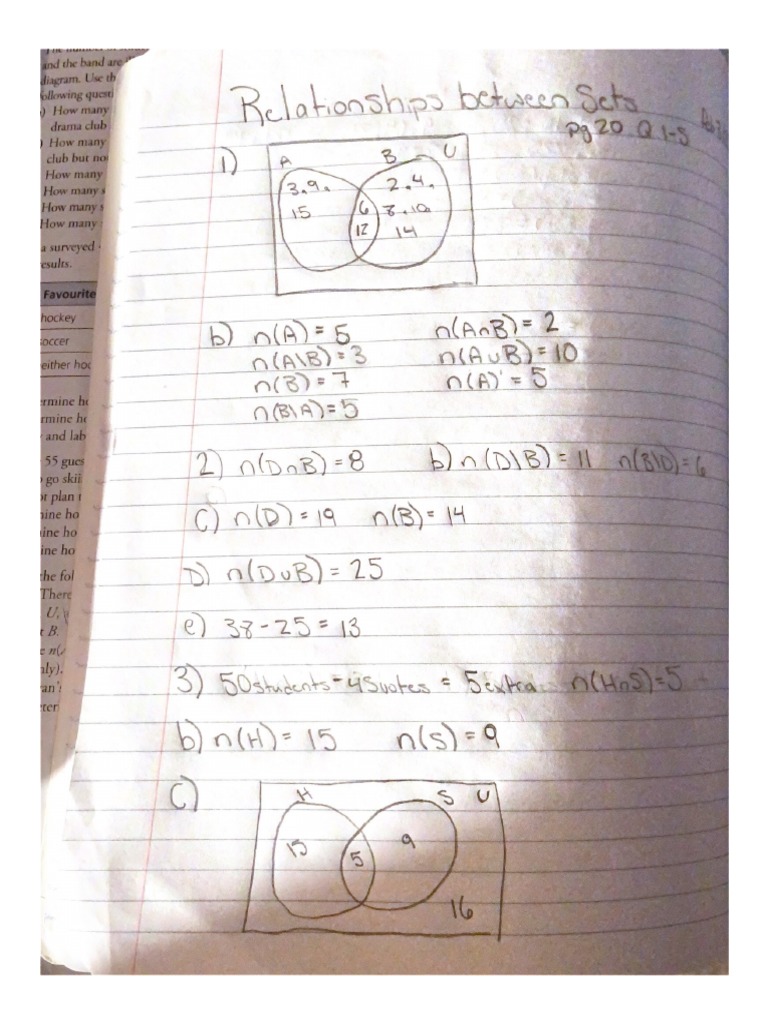 and the band are
diagram. Use th
ollowing questi
) How many
drama club
) How many
club but no
How many
How many s
How many s
How many
a surveyed
esults.
Favourite
hockey
soccer
either hoc
ermine h
rmine h
and lab
55 gues
go skii
ot plan
nine ho
ine ho
ine ho
the fol
There
U,
B.
e n(
nly).
an'
ter
Relationships between Sets
pg 20 Q 1-5
1)
A B U
3. 9. 2. 4.
15 6 8. 10
12 14
b) n(A) = 5 n(A∩B) = 2
n(A\B) = 3 n(A∪B) = 10
n(B) = 7 n(A)' = 5
n(B\A) = 5
2) n(D∩B) = 8 b) n(D\B) = 11 n(B\D) = 6
C) n(D) = 19 n(B) = 14
D) n(D∪B) = 25
e) 38 - 25 = 13
3) 50 students - 45 votes = 5 extra n(H∩S) = 5
b) n(H) = 15 n(S) = 9
C)
H S U
15 5 9
16